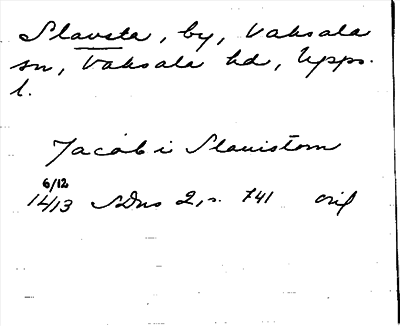 Slavsta, by, Vaksala
sn, Vaksala hd, Upps.
l.
Jacob i Slauistom
6/12
1413 SDns 2, s. 741 orig